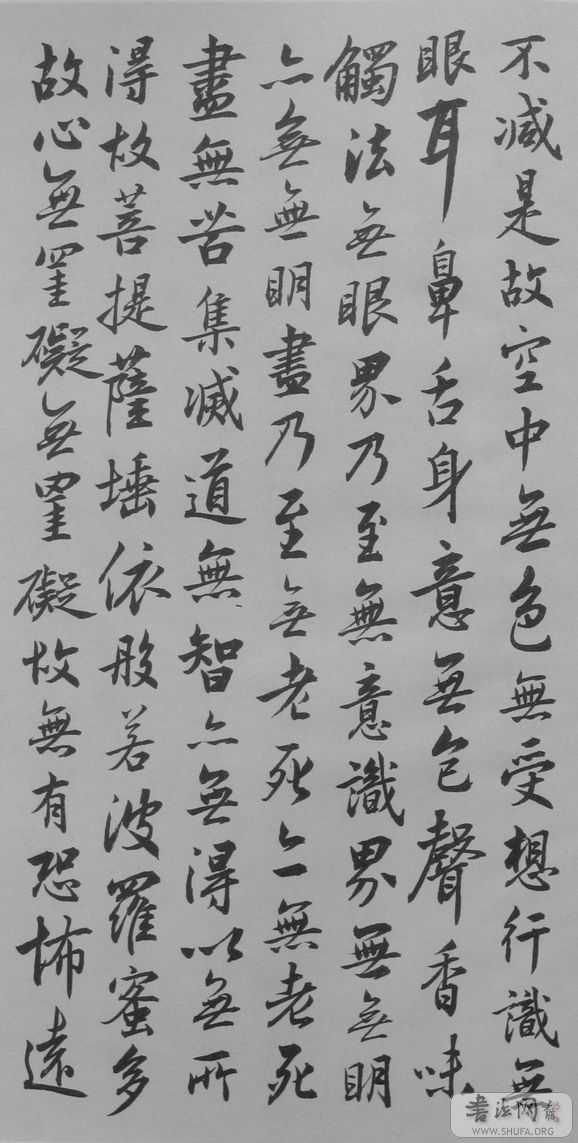 不減是故空中無色無受想行識無
眼耳鼻舌身意無色聲香味
觸法無眼界乃至無意識界無無明
亦無無明盡乃至無老死亦無老死
盡無苦集滅道無智亦無得以無所
得故菩提薩埵依般若波羅蜜多
故心無罣礙無罣礙故無有恐怖遠
書法网
WWW.SHUFA.ORG